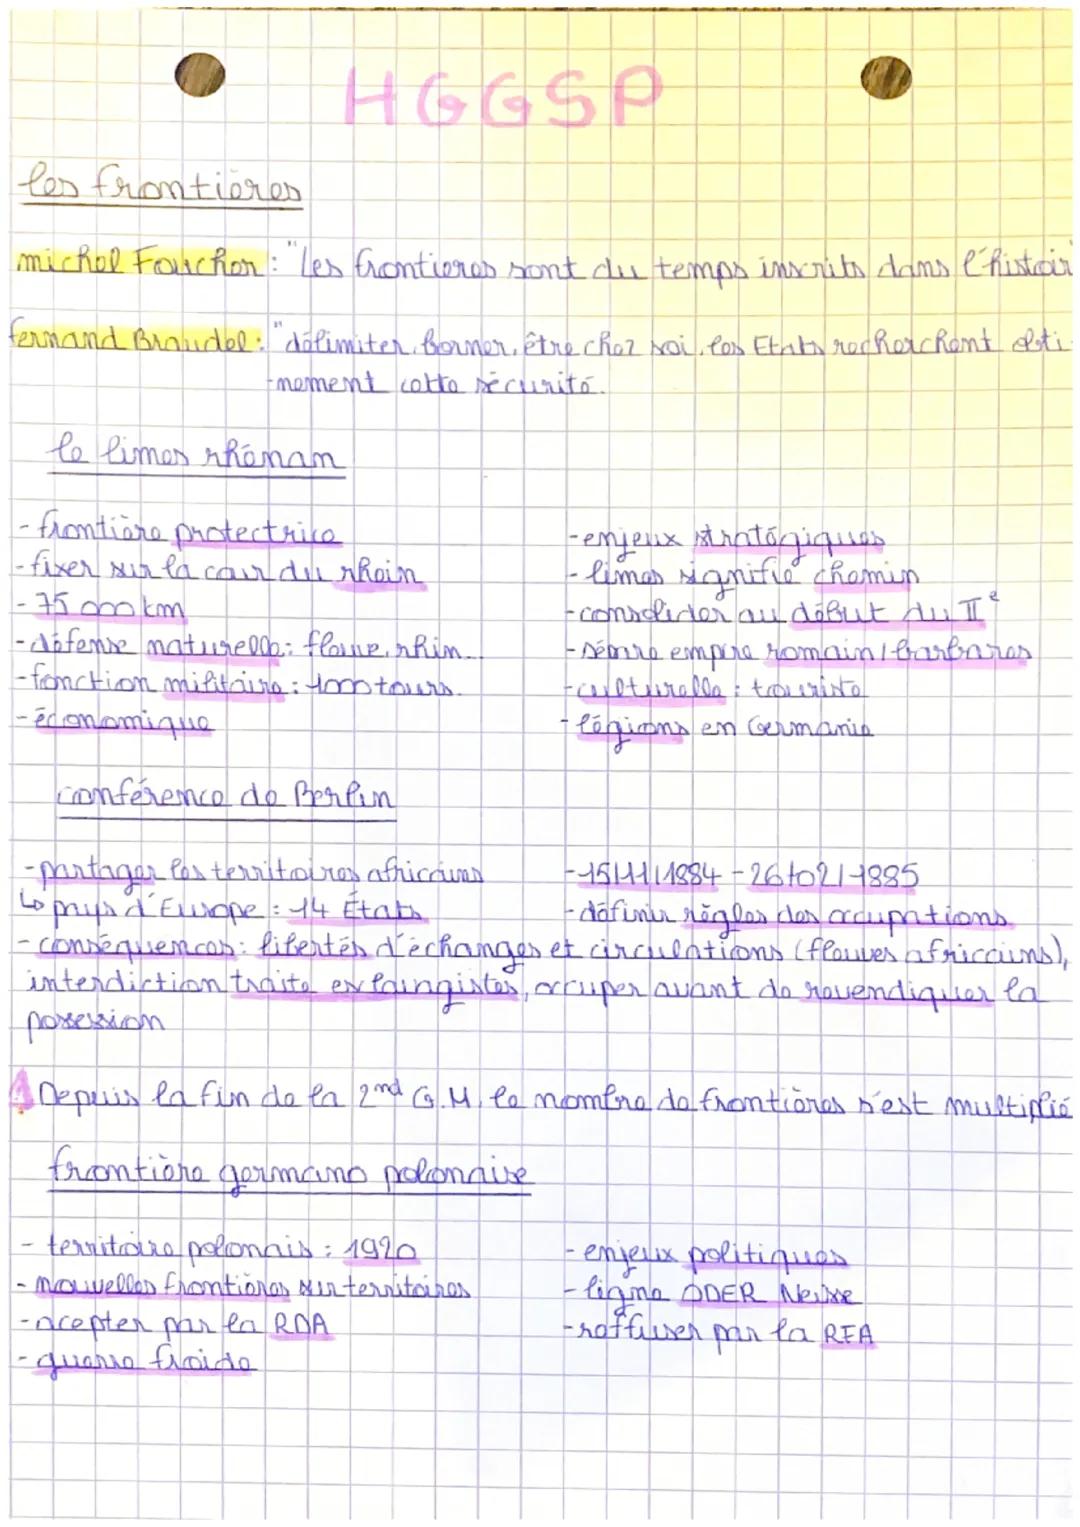 HGGSP
les frontières
michel Foucher : "les frontieres sont du temps inscrits dans l'histoir
fernand Braudel : "délimiter, borner, être chez soi, les Etats recherchent obsti-
-nement cette sécurité.
le limes rhénan
- frontière protectrice
- fixer sur la cour du rhein
- 75 000 km
- défense naturelle : fleuve, rhin...
- fonction militaire : 1000 tours.
- économique
- enjeux stratégiques
- limes signifie chemin
- consolider au début du IIe
- sépare empire romain / barbares
- culturelle : touriste
- légions en Germanie
conférence de Berlin
- partager les territoires africains
↳ pays d'Europe : 14 États
- 15/11/1884 - 26/02/1885
- définir règles des occupations
- conséquences : libertés d'échanges et circulations (fleuves africains),
interdiction traite esclavagistes, occuper avant de revendiquer la
possession
! Depuis la fin de la 2nd G.M, le nombre de frontières s'est multiplié
frontière germano polonaise
- territoire polonais : 1920
- nouvelles frontières sur territoires
- acepter par la RDA
- guerre froide
- enjeux politiques
- ligne ODER Neisse
- reffuser par la RFA